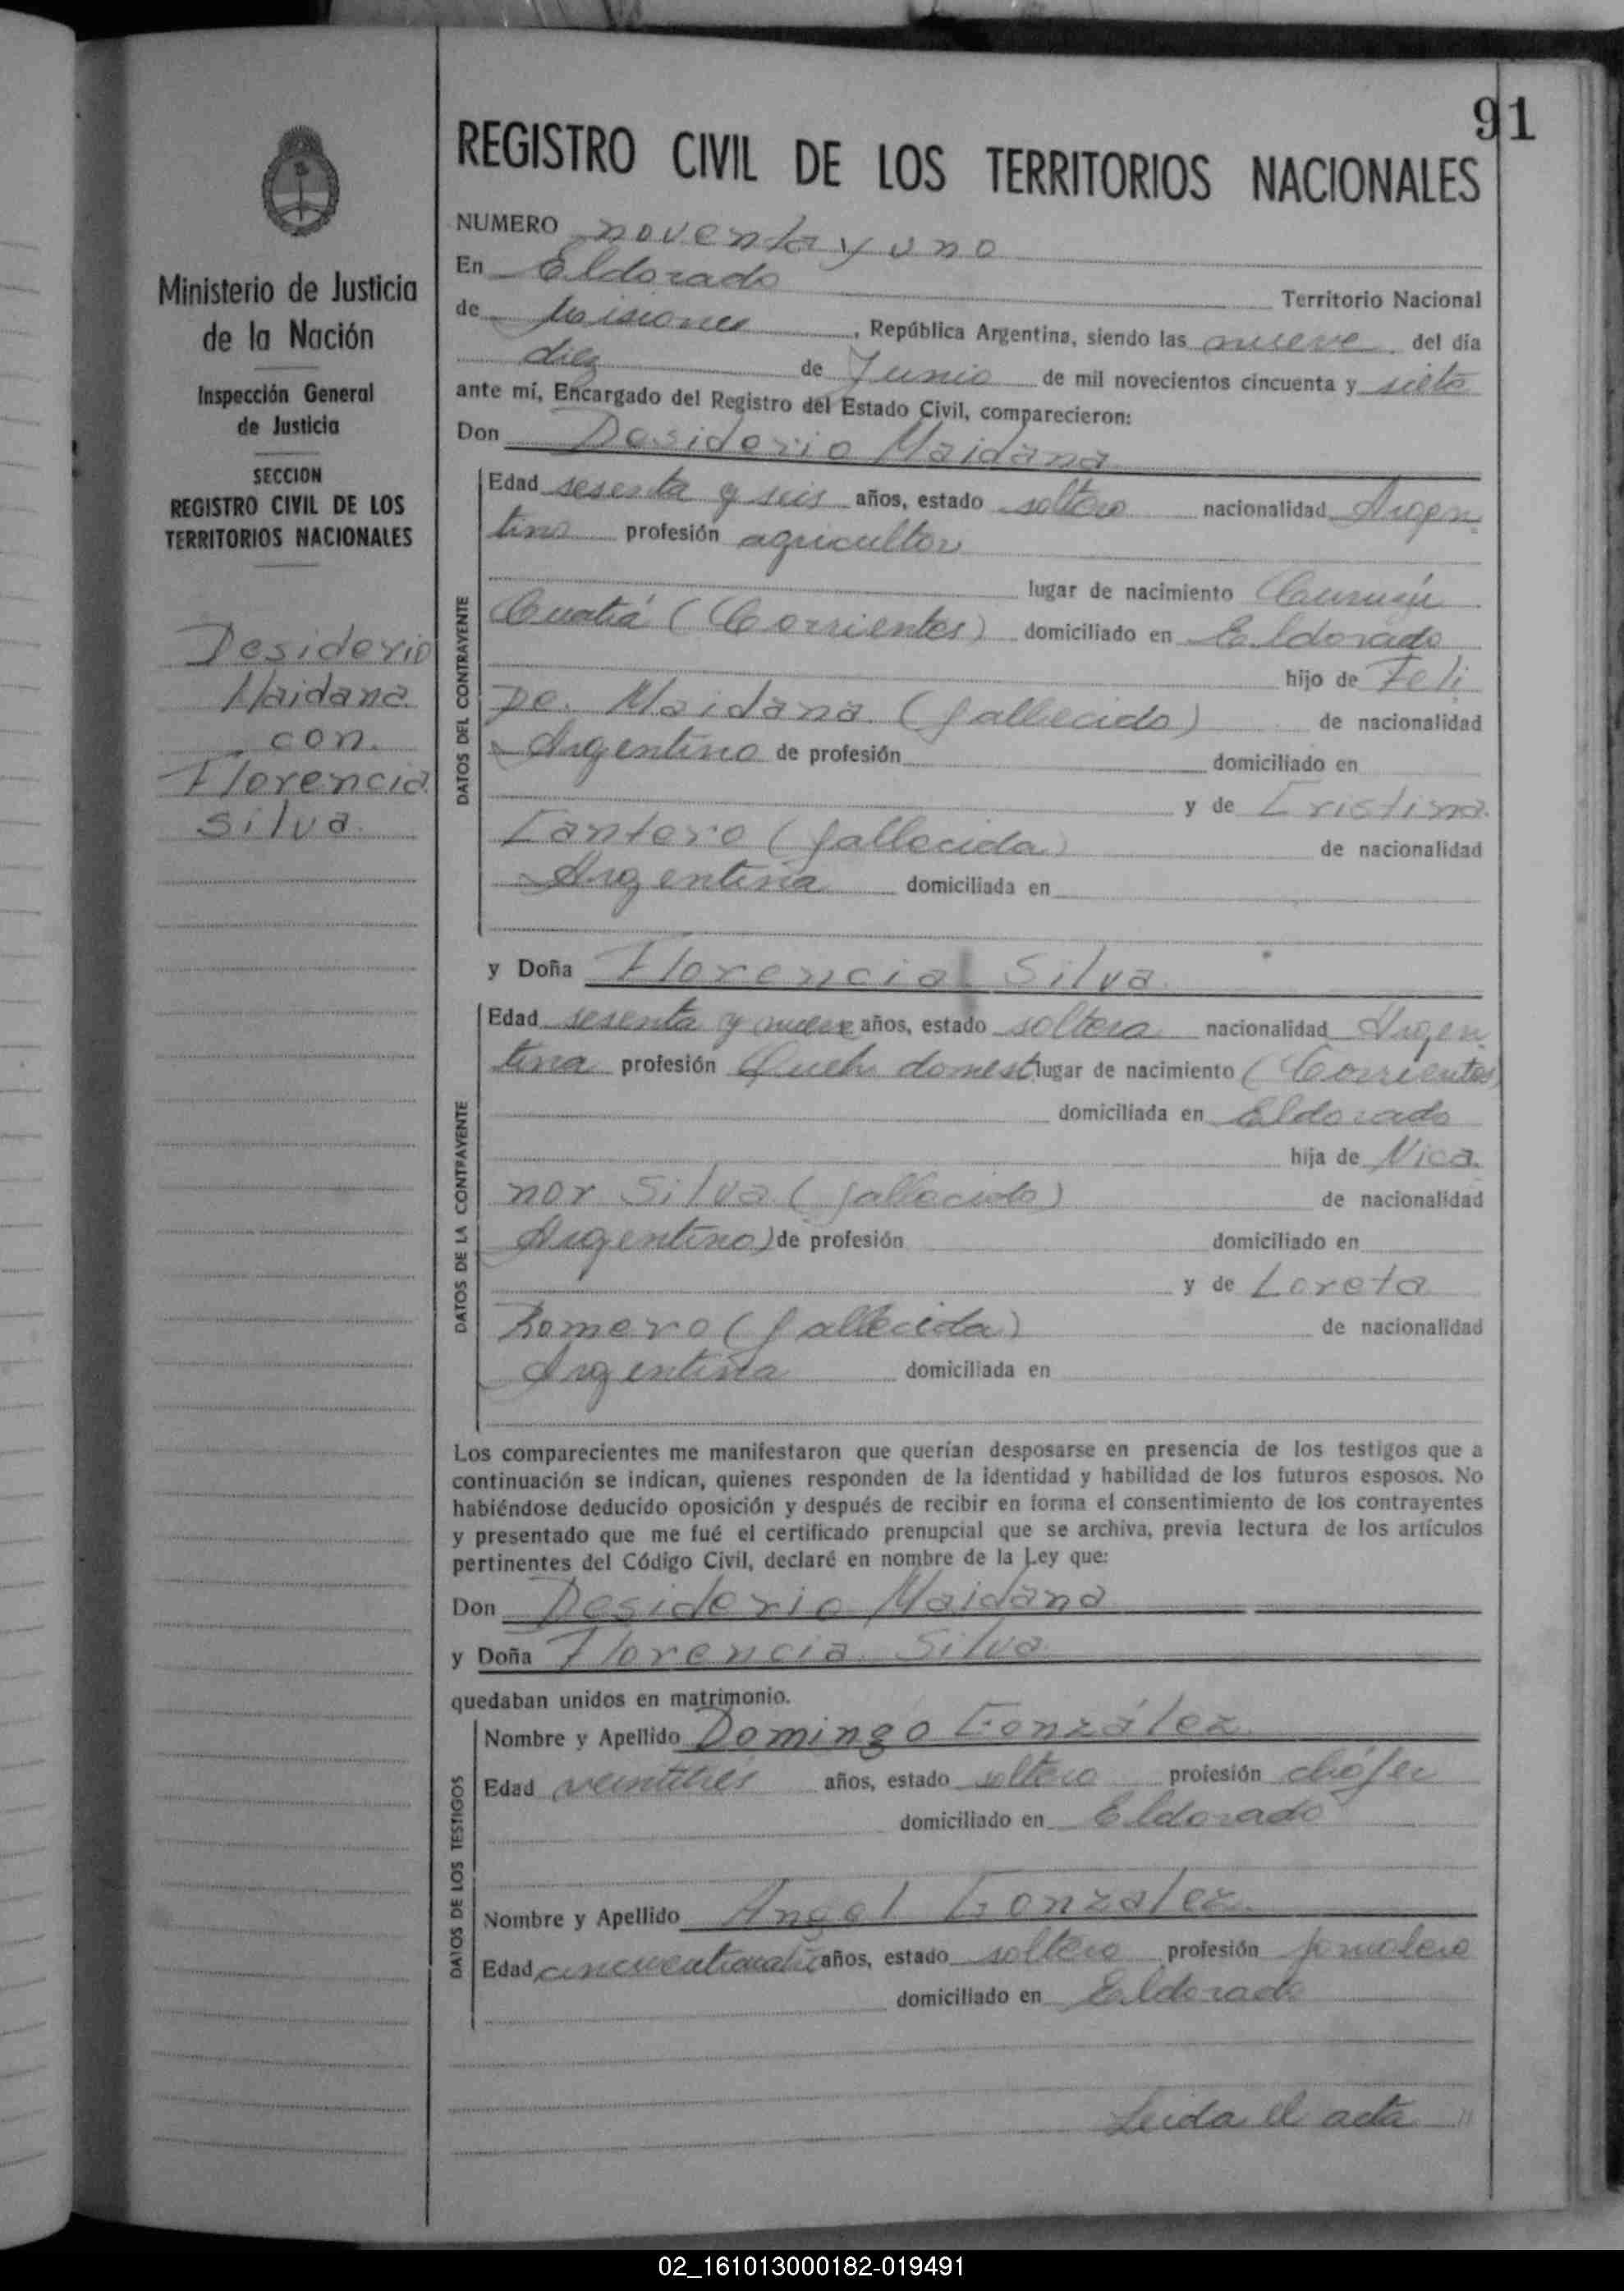 91
REGISTRO CIVIL DE LOS TERRITORIOS NACIONALES
Ministerio de Justicia
de la Nación
Inspección General
de Justicia
SECCION
REGISTRO CIVIL DE LOS
TERRITORIOS NACIONALES
Desiderio
Maidana
con
Florencia
Silva
NUMERO noventa y uno
En Eldorado Territorio Nacional
de Misiones, República Argentina, siendo las nueve del día
diez de Junio de mil novecientos cincuenta y siete
ante mí, Encargado del Registro del Estado Civil, comparecieron:
Don Desiderio Maidana
DATOS DEL CONTRAYENTE
Edad sesenta y seis años, estado soltero nacionalidad Argen
tino profesión agricultor
lugar de nacimiento Curuzú
Cuatiá (Corrientes) domiciliado en Eldorado
hijo de Feli
pe Maidana (fallecido) de nacionalidad
Argentino de profesión domiciliado en
y de Cristina
Cantero (fallecida) de nacionalidad
Argentina domiciliada en
y Doña Florencia Silva
DATOS DE LA CONTRAYENTE
Edad sesenta y nueve años, estado soltera nacionalidad Argen
tina profesión Queh. domest lugar de nacimiento (Corrientes)
domiciliada en Eldorado
hija de Nica
nor Silva (fallecido) de nacionalidad
Argentino) de profesión domiciliado en
y de Loreta
Romero (fallecida) de nacionalidad
Argentina domiciliada en
Los comparecientes me manifestaron que querían desposarse en presencia de los testigos que a
continuación se indican, quienes responden de la identidad y habilidad de los futuros esposos. No
habiéndose deducido oposición y después de recibir en forma el consentimiento de los contrayentes
y presentado que me fué el certificado prenupcial que se archiva, previa lectura de los artículos
pertinentes del Código Civil, declaré en nombre de la Ley que:
Don Desiderio Maidana
y Doña Florencia Silva
quedaban unidos en matrimonio.
DATOS DE LOS TESTIGOS
Nombre y Apellido Domingo González
Edad veintitrés años, estado soltero profesión chófer
domiciliado en Eldorado
Nombre y Apellido Angel Gonzalez
Edad años, estado soltero profesión jornalero
domiciliado en Eldorado
Leida el acta "
02_161013000182-019491